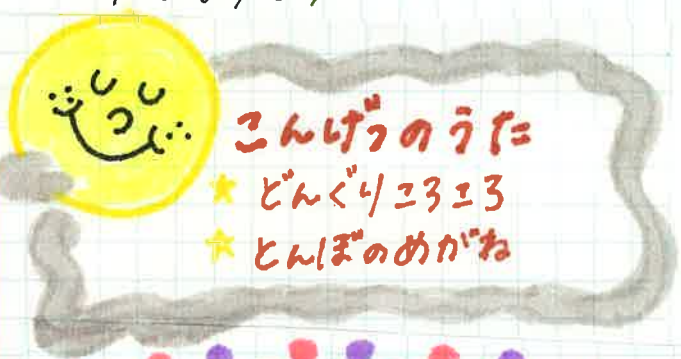 こんげつのうた
★ どんぐりころころ
★ とんぼのめがね